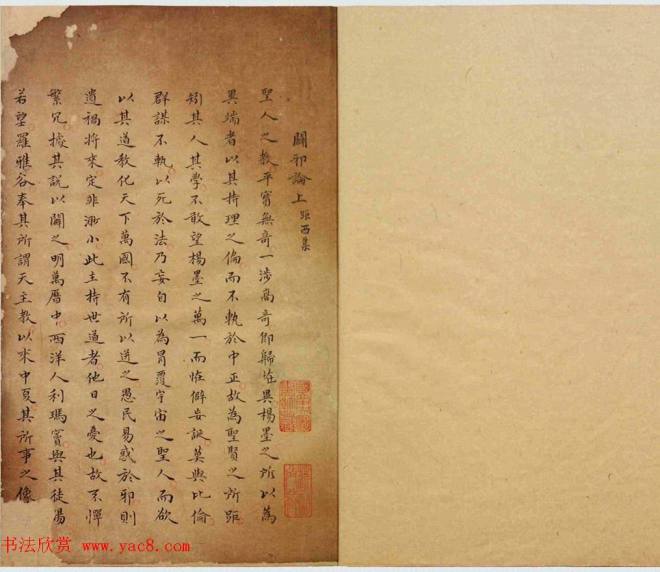 闢邪論上 距西集
聖人之教平實無奇一涉高奇即歸怪異楊墨之所以為
異端者以其持理之偏而不執於中正故為聖賢之所距
矧其人其學不敢望楊墨之萬一而怪僻妄誕莫與比倫
群謀不執以死於法乃妄自以為冐覆宇宙之聖人而欲
以其道教化天下萬國不有所以迸之愚民易惑於邪則
遺禍將來定非渺小此主持世道者他日之憂也故不憚
繁冗據其說以闢之明萬曆中西洋人利瑪竇與其徒湯
若望羅雅谷奉其所謂天主教以來中夏其所事之像
书法欣赏 www.yac8.com